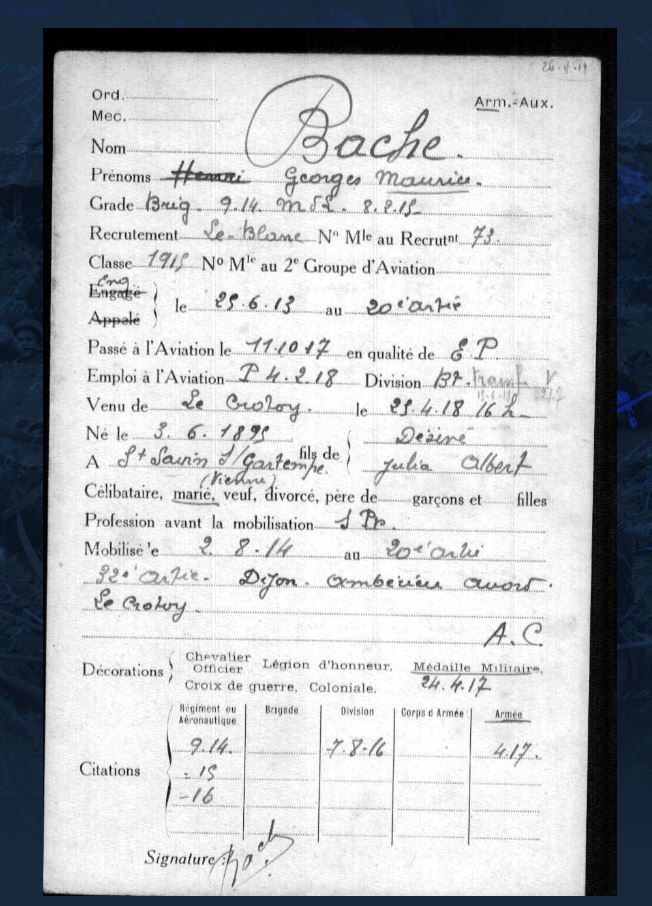 26-4-19
Ord.
Arm.-Aux.
Mec.
Nom Bache.
Prénoms Henri Georges Maurice.
Grade Brig. 9.14. MdL. 8.9.15
Recrutement Le-Blanc Nº Mle au Recrutnt 73.
Classe 1915 Nº Mle au 2e Groupe d'Aviation
Eng
Engagé
Appelé
le 25.6.13 au 20e artie
Passé à l'Aviation le 11.10.17 en qualité de E P.
Emploi à l'Aviation P 4.2.18 Division Bt. V
Venu de Le Crotoy. le 25.4.18 16 h
Né le 3. 6. 1895 fils de Désiré
A St Savin s/Gartempe. Julia Albert
(Vienne)
Célibataire, marié, veuf, divorcé, père de garçons et filles
Profession avant la mobilisation S Pr.
Mobilisé 'e 2. 8-14 au 20e artie
32e Artie- Dijon. Ambérieu Avord.
Le Crotoy-
A.C.
Décorations Chevalier Officier Légion d'honneur, Médaille Militaire,
Croix de guerre, Coloniale. 24.4.17
Régiment ou Aéronautique Brigade Division Corps d'Armée Armée
9.14. 7-8-16 4.17.
Citations - 15
-16
Signature : Bach